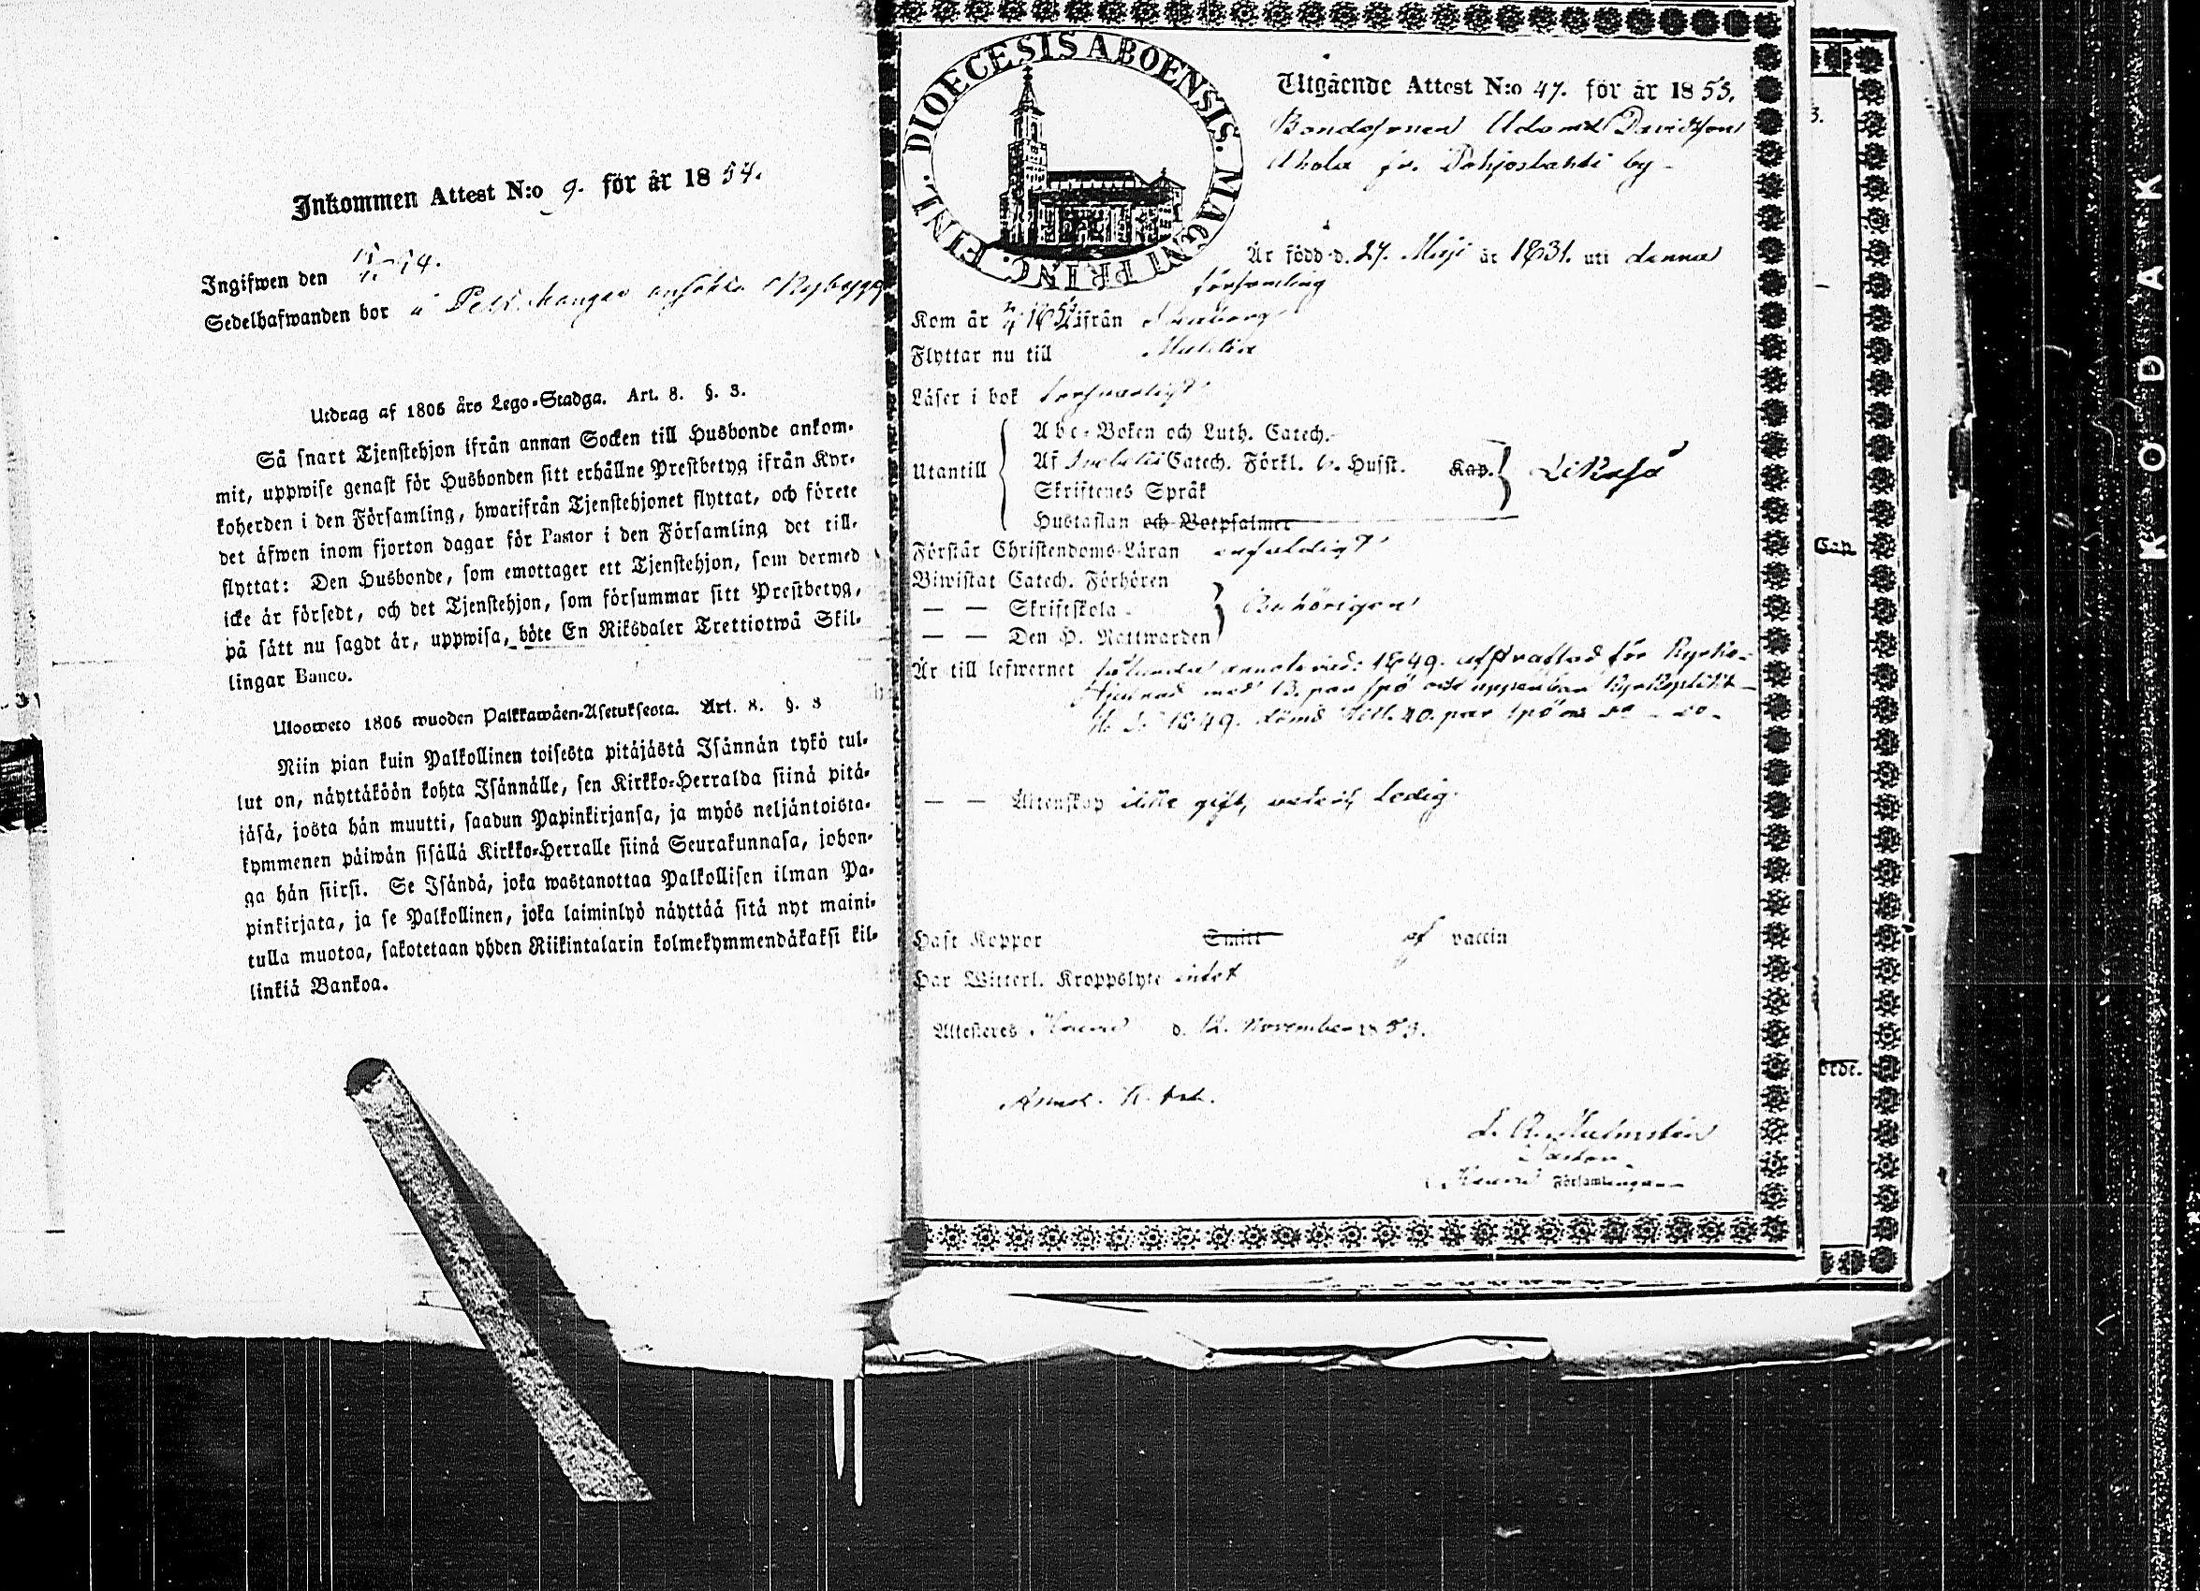 Inkommen Attest N:o 9. för år 1854.
Ingifwen den
Sedelhafwanden bor
Utdrag af 1805 års Lego-Stadga. Art. 8. §. 3.
Så snart Tjenstehjon ifrån annan Socken till Husbonde ankom-
mit, uppwise genast för Husbonden sitt erhållne Prestbetyg ifrån Kyr-
koherden i den Församling, hwarifrån Tjenstehjonet flyttat, och förete
det äfwen inom fjorton dagar för Pastor i den Församling det till-
flyttat: Den Husbonde, som emottager ett Tjenstehjon, som dermed
icke är försedt, och det Tjenstehjon, som försummar sitt Prestbetyg,
på sätt nu sagdt är, uppwisa, böte En Riksdaler Trettiotwå Skil-
lingar Banco.
Ulosweto 1805 wuoden Palkkawäen-Asetuksesta. Art. 8. §. 3
Niin pian kuin Palkollinen toisesta pitäjästä Isännän tykö tul-
lut on, näyttäköön kohta Isännälle, sen Kirkko-Herralda siinä pitä-
jäsä, josta hän muutti, saadun Papinkirjansa, ja myös neljäntoista-
kymmenen päiwän sisällä Kirkko-Herralle siinä Seurakunnasa, johon-
ga hän siirsi. Se Isändä, joka wastanottaa Palkollisen ilman Pa-
pinkirjata, ja se Palkollinen, joka laiminlyö näyttää sitä nyt maini-
tulla muotoa, sakotetaan yhden Riikintalarin kolmekymmendäkaksi kil-
linkiä Bankoa.
DIOECESIS ABOENSIS. MAGNI PRINC. FINL.
Utgående Attest N:o 47. för år 1853.
Bondesonen Adam Davidsson
Ahola fr. Pohjoslahti by
Är född d. 27. Maji år 1831. uti denna
församling
Kom år ifrån
Flyttar nu till Multia
Läser i bok försvarligt
Utantill
Abc-Boken och Luth. Catech.
Af Svebelii Catech. Förkl. o. Husst. Kap.
Likaså
Skriftenes Språk
Hustaflan och Botpsalmer
Förstår Christendoms-Läran enfaldigt
Biwistat Catech. Förhören
— — Skriftskola
Behörigen
— — Den H. Nattwarden
Är till lefwernet 1849. afstraffad för Kyrko-
med 13. par spö och uppenbar Kyrkoplikt
1849. dömd till 40. par spö
— — Äktenskap icke gift, ledig.
Haft Koppor Smitt af vaccin
Har Witterl. Kroppslyte intet
Attesteras d. 12. November 1853.
Pastor
Församlingar
3.
Cap.
örde.
KODAK